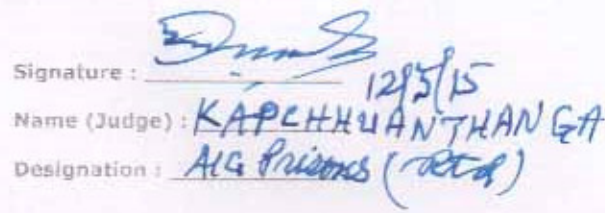 Signature :
12/5/15
Name (Judge) : KAPCHHUANTHANGA
Designation : AIG Prisons (Rtd)